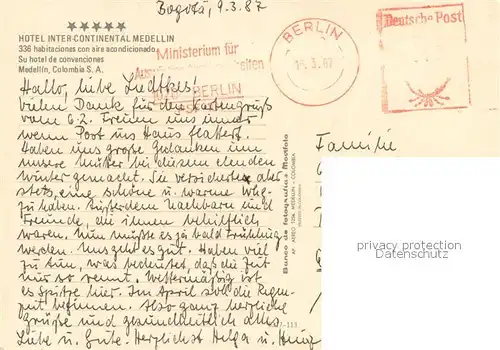 Bogotá, 9.3.87
HOTEL INTER-CONTINENTAL MEDELLIN
336 habitaciones con aire acondicionado
Su hotel de convenciones
Medellín, Colombia S. A.
Ministerium für
BERLIN
BERLIN
16.3.87
Deutsche Post
Hallo, liebe
vielen Dank für den Kartengruß
vom 6.2. Freuen uns immer
wenn Post ins Haus flattert.
Haben uns große Gedanken um
unsere Mutter bei diesem elenden
Winter gemacht. Sie versicherte aber
stets, eine schöne u. warme Whg.
zu haben. Außerdem Nachbarn und
Freunde, die ihnen behilflich
waren. Nun müßte es ja bald Frühling
werden. Uns geht es gut. Haben viel
zu tun, was bedeutet, daß die Zeit
nur so rennt. Wettermäßig ist
es Spitze hier. Im April soll die Regen-
zeit beginnen. Also ganz herzliche
Grüße und gesundheitlich alles
Liebe u. Gute. Herzlichst Helga u. Heinz
Banco de fotografías Movifoto
Familie
privacy protection
Datenschutz